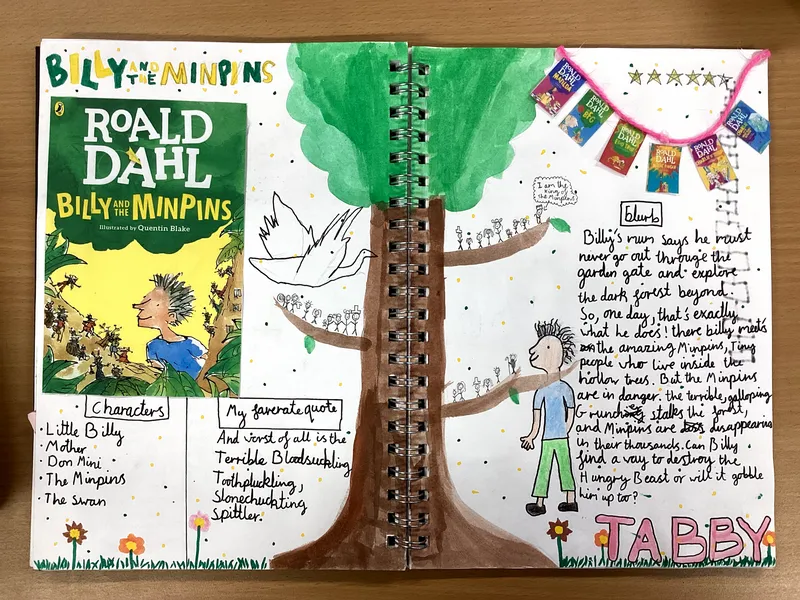 BILLY AND THE MINPINS
ROALD
DAHL
BILLY AND THE MINPINS
Illustrated by Quentin Blake
Characters
· Little Billy
· Mother
· Don Mini
· The Minpins
· The swan
My faverate quote
And worst of all is the
Terrible Bloodsuckling
Toothpluckling,
Stonechuckting
spittler.
I am the
king of
the Minpins
ROALD
DAHL
MATILDA
ROALD
DAHL
BFG
ROALD
DAHL
ROALD
DAHL
ROALD
DAHL
ROALD
DAHL
blurb
Billy's mum says he must
never go out through the
garden gate and explore
the dark forest beyond.
So, one day, that's exactly
what he does! there billy meets
the amazing Minpins, Tiny
people who live inside the
hollow trees. But the Minpins
are in danger. the terrible, galloping
Gruncher stalks the forest,
and Minpins are disappearing
in their thousands. Can Billy
find a way to destroy the
Hungry Beast or will it gobble
him up too?
TABBY